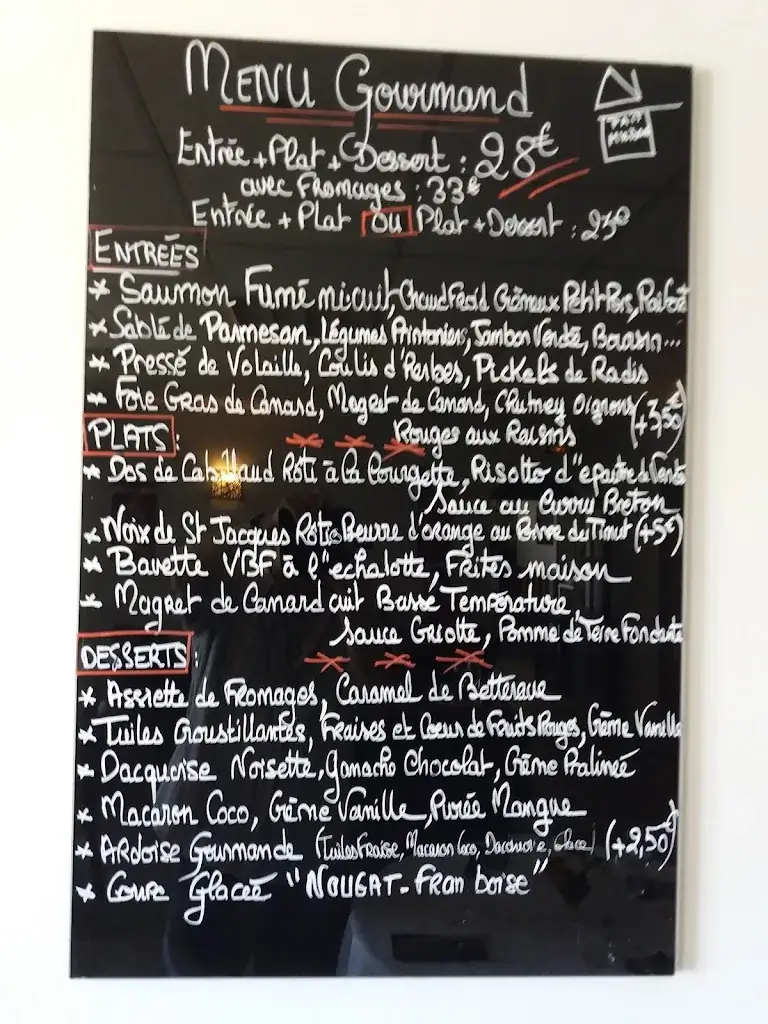 MENU Gourmand
FAIT MAISON
Entrée + Plat + Dessert : 28€
avec Fromages : 33€
Entrée + Plat OU Plat + Dessert : 23€
ENTRÉES
* Saumon Fumé mi cuit, Chaud Froid Crémeux Petit Pois, Raifort
* Sablé de Parmesan, Légumes Printaniers, Jambon Vendé, Boursin...
* Pressé de Volaille, Coulis d'Herbes, Pickels de Radis
* Foie Gras de Canard, Magret de Canard, Chutney Oignons (+3,50€)
Rouges aux Raisins
PLATS :
* Dos de Cabillaud Rôti à la Courgette, Risotto d'epautre de Vendé
Sauce au Curry Breton
* Noix de St Jacques Rôtie Beurre d'orange au Poivre de Timut (+5€)
* Bavette VBF à l'echalotte, Frites maison
* Magret de Canard cuit Basse Température,
Sauce Griotte, Pomme de Terre Fondante
DESSERTS :
* Assiette de Fromages, Caramel de Betterave
* Tuiles Croustillantes, Fraises et Coeur de Fruits Rouges, Crème Vanille
* Dacquoise Noisette, Ganache Chocolat, Crème Pralinée
* Macaron Coco, Crème Vanille, Purée Mangue
* ARdoise Gourmande (Tuiles Fraise, Macaron Coco, Dacquoise, Glace) (+2,50€)
* Coupe Glacée "NOUGAT-Fran boise"